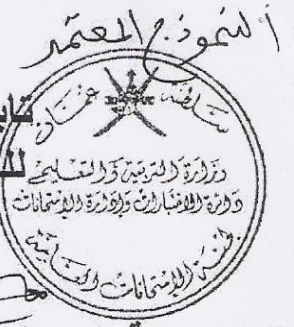 النموذج المعتمد
سلطنة عمان
وزارة التربية والتعليم
دائرة الاختبارات وإدارة الامتحانات
لجنة الامتحانات العامة